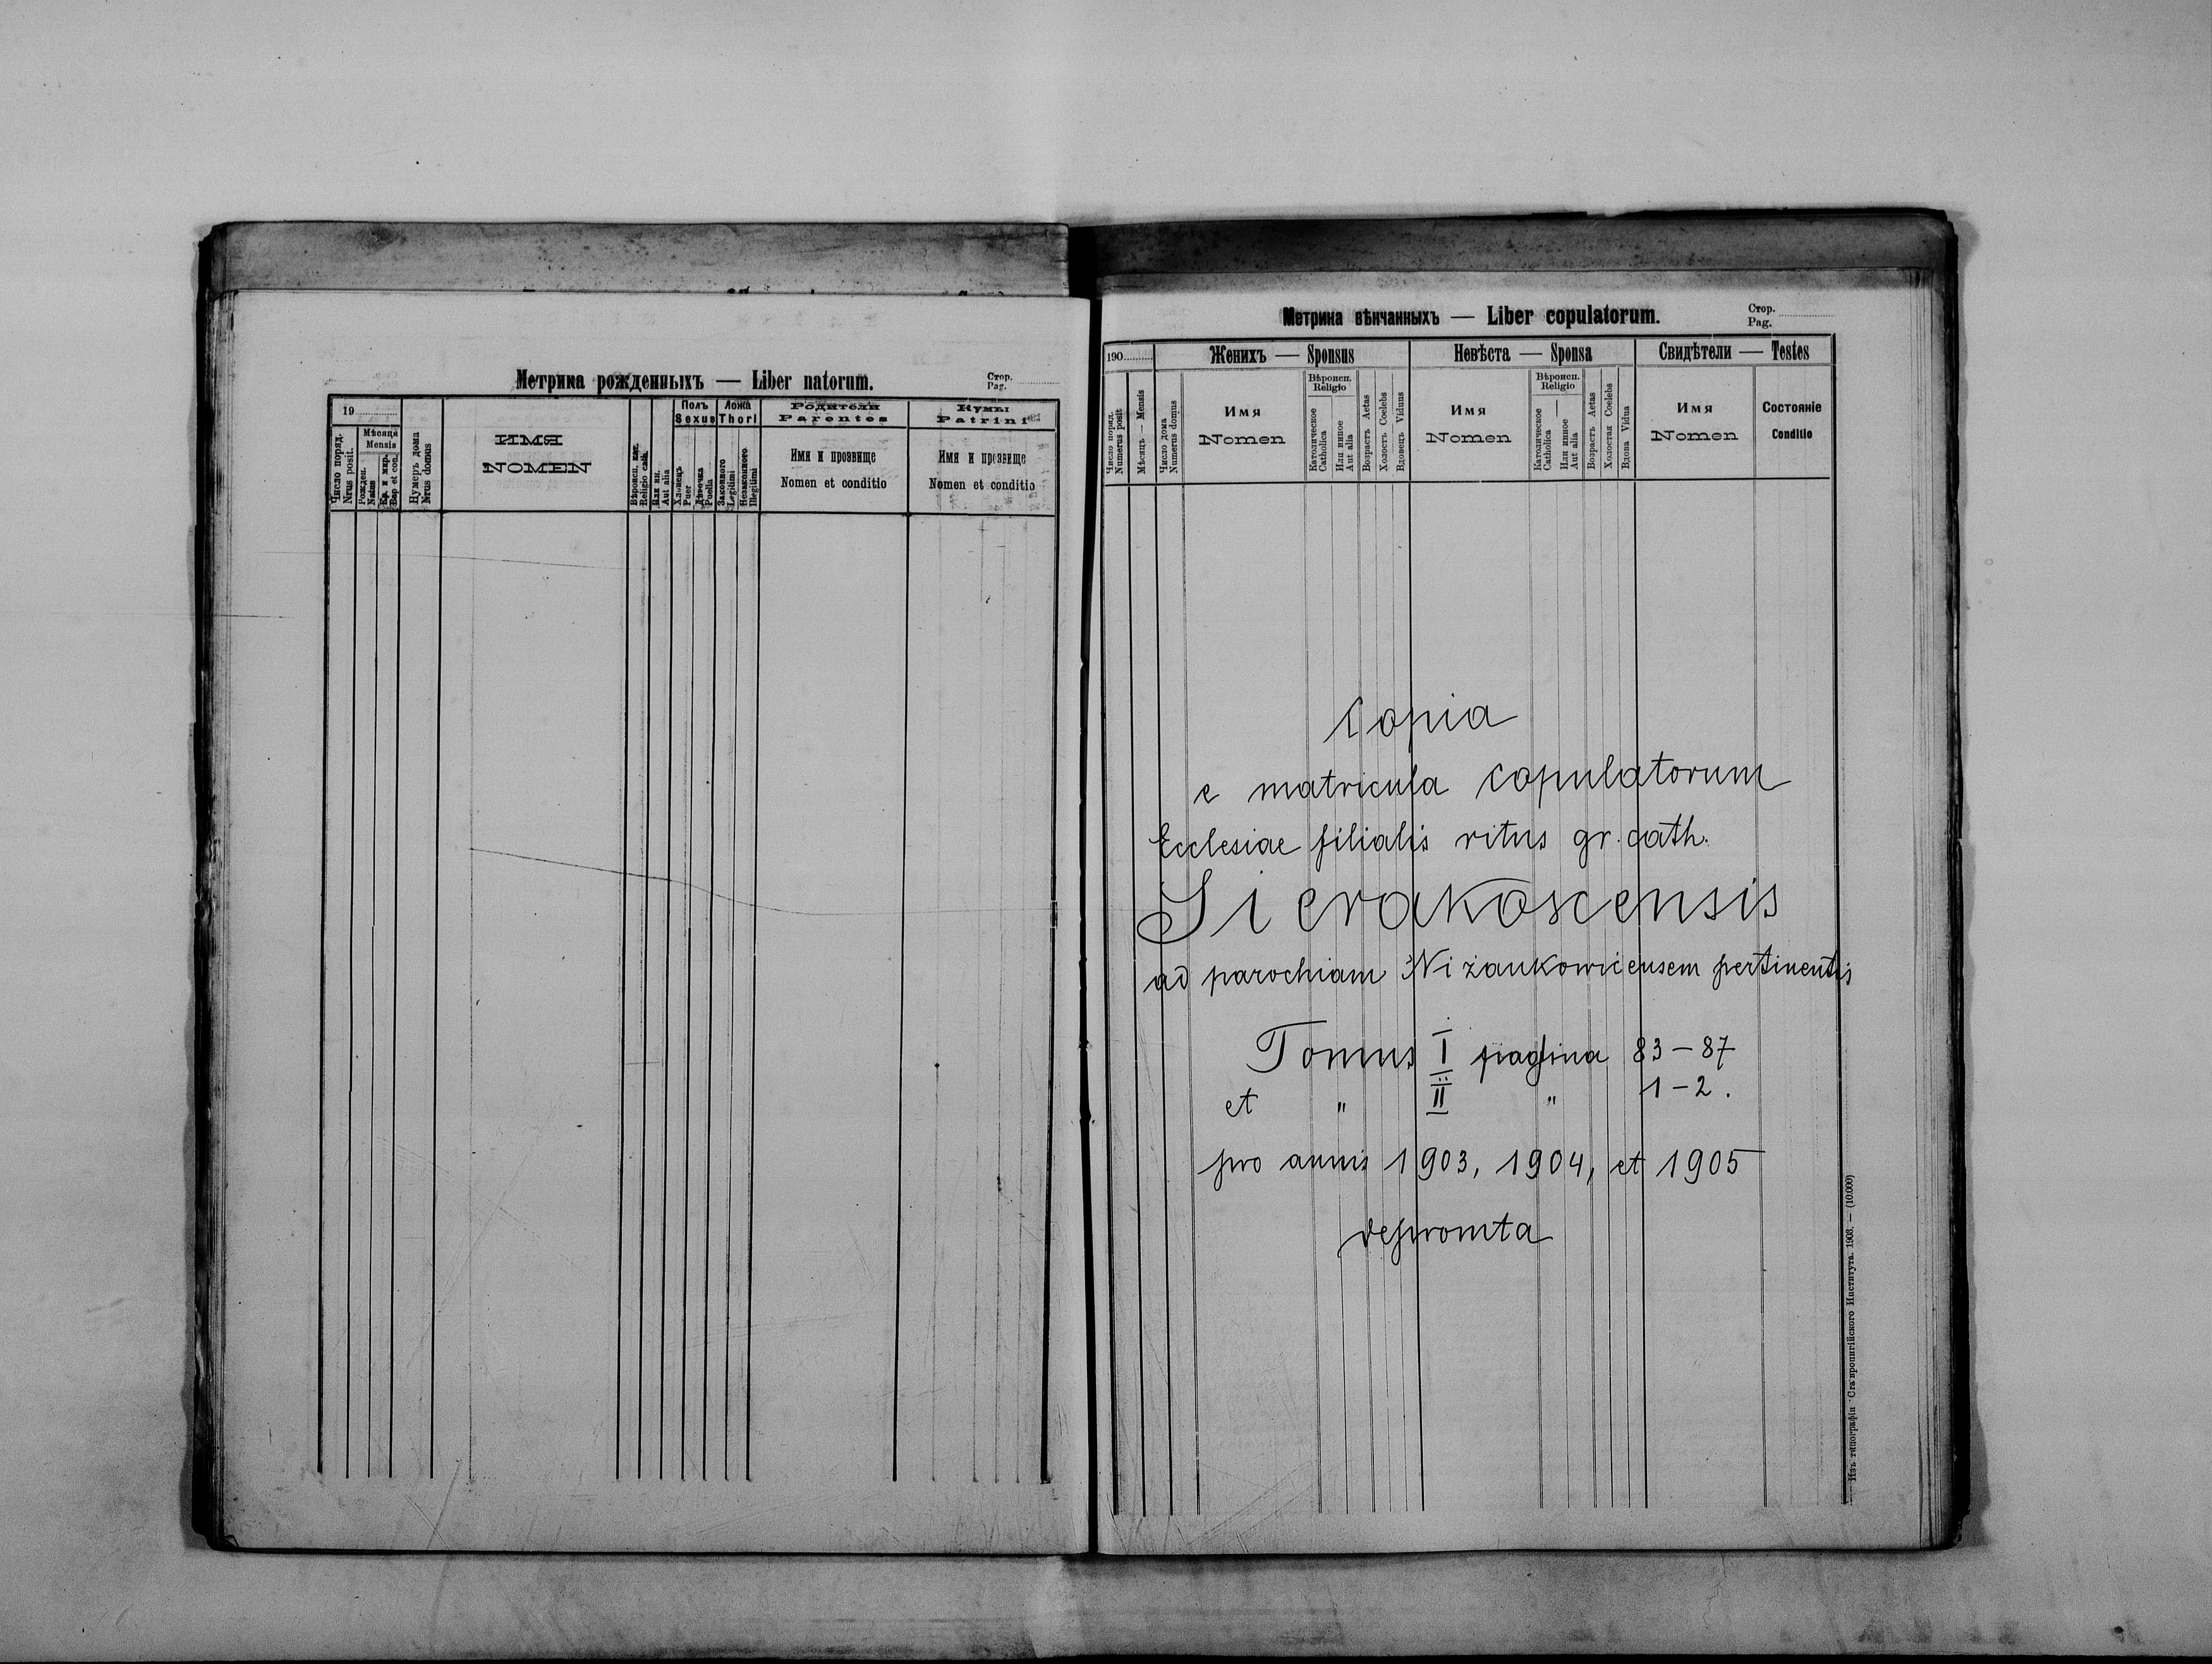 Метрика рожденныхъ — Liber natorum.
Стор.
Pag.
19
Число поряд.
Nrus posit.
Мѣсяця
Mensis
Рожден.
Natus
Кр. и мир.
Bap et con.
Нумеръ дома
Nrus domus
ИМЯ
NOMEN
Вѣроисп. кат.
Religio cath.
Или ин.
Aut alia
Полъ
Sexus
Хлопецъ
Puer
Дѣвочка
Puella
Ложа
Thori
Законного
Legitimi
Незаконного
Illegitimi
Родители
Parentes
Имя и прозвище
Nomen et conditio
Кумы
Patrini
Имя и прозвище
Nomen et conditio
Метрика вѣнчанныхъ — Liber copulatorum.
Стор.
Pag.
190
Число поряд.
Numerus posit
Мѣсяцъ — Mensis
Женихъ — Sponsus
Число дома
Numerus domus
Имя
Nomen
Вѣроисп.
Religio
Католическое
Catholica
Или иное
Aut alia
Возрастъ Aetas
Холостъ Coelebs
Вдовецъ Viduus
Невѣста — Sponsa
Имя
Nomen
Вѣроисп.
Religio
Католическое
Catholica
Или иное
Aut alia
Возрастъ Aetas
Холостая Coelebs
Вдова Vidua
Свидѣтели — Testes
Имя
Nomen
Состояніе
Conditio
Copia
e matricula copulatorum
Ecclesiae filialis ritus gr. cath.
Sierakoscensis
ad parochiam Niżankowicensem pertinentis
Tomus I pagina 83–87
et " II " 1–2.
pro annis 1903, 1904, et 1905
depromta
Изъ типографіи Ставропигійского Института. 1903. — (10.000)